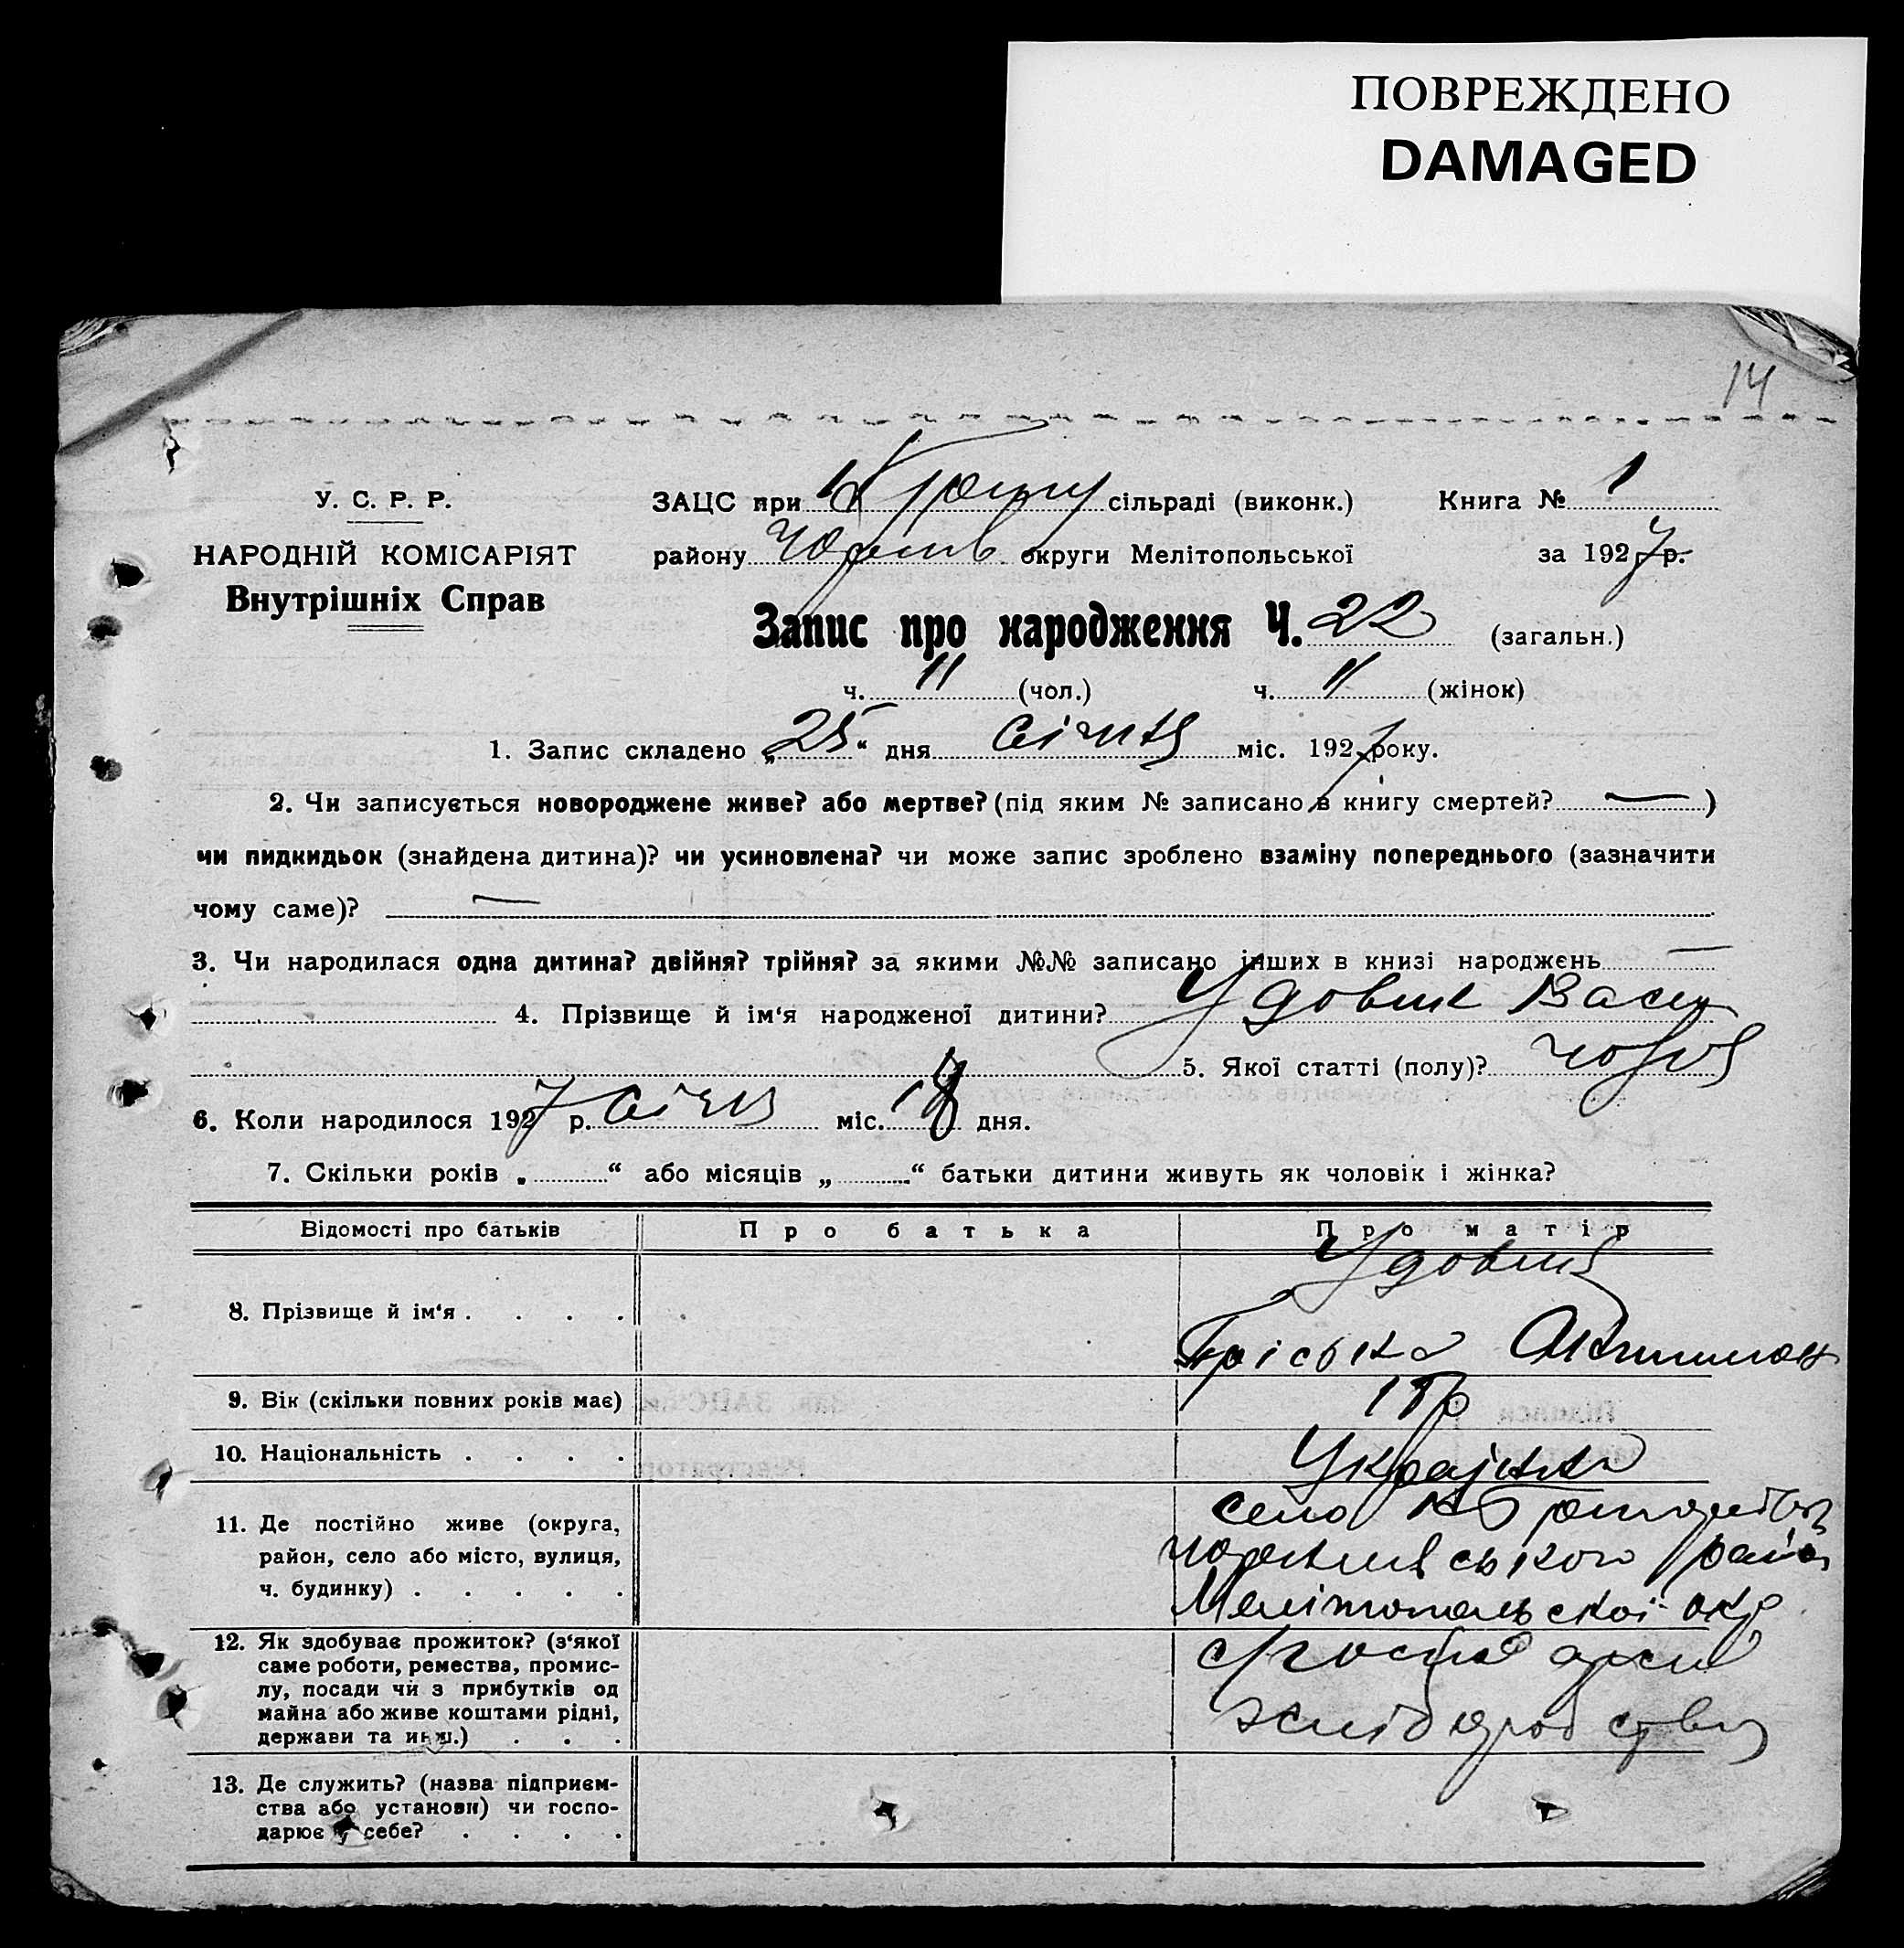 ПОВРЕЖДЕНО
DAMAGED
14
У. С. Р. Р.
НАРОДНІЙ КОМІСАРІЯТ
Внутрішніх Справ
ЗАЦС при сільраді (виконк.) Книга № 1
району округи Мелітопольської за 1927 р.
Запис про народження Ч. 22 (загальн.)
ч. 11 (чол.) ч. 11 (жінок)
1. Запис складено „25“ дня січня міс. 1927 року.
2. Чи записується новороджене живе? або мертве? (під яким № записано в книгу смертей? — )
чи пидкидьок (знайдена дитина)? чи усиновлена? чи може запис зроблено взаміну попереднього (зазначити
чому саме)? —
3. Чи народилася одна дитина? двійня? трійня? за якими №№ записано інших в книзі народжень —
4. Прізвище й ім‘я народженої дитини? Удовик
5. Якої статті (полу)?
6. Коли народилося 1927 р. січня міс. дня.
7. Скільки років „ “ або місяців „ “ батьки дитини живуть як чоловік і жінка?
Відомості про батьків Про батька Про матір
8. Прізвище й ім‘я . . . . Удовик
9. Вік (скільки повних років має)
10. Національність . . . . Українка
11. Де постійно живе (округа,
район, село або місто, вулиця,
ч. будинку) . . . . .
село
район
Мелітопольскоі окр
12. Як здобуває прожиток? (з‘якої
саме роботи, ремества, промис-
лу, посади чи з прибутків од
майна або живе коштами рідні,
держави та инш.) . . .
13. Де служить? (назва підприєм-
ства або установи) чи госпо-
дарює у себе? . . . .